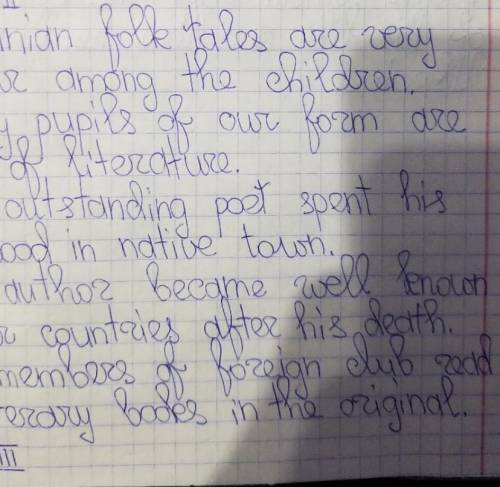 II
nian folk tales are very
r among the children.
y pupils of our form are
of literature.
outstanding poet spent his
ood in native town.
author became well known
r countries after his death.
members of foreign club read
erary books in the original.
III